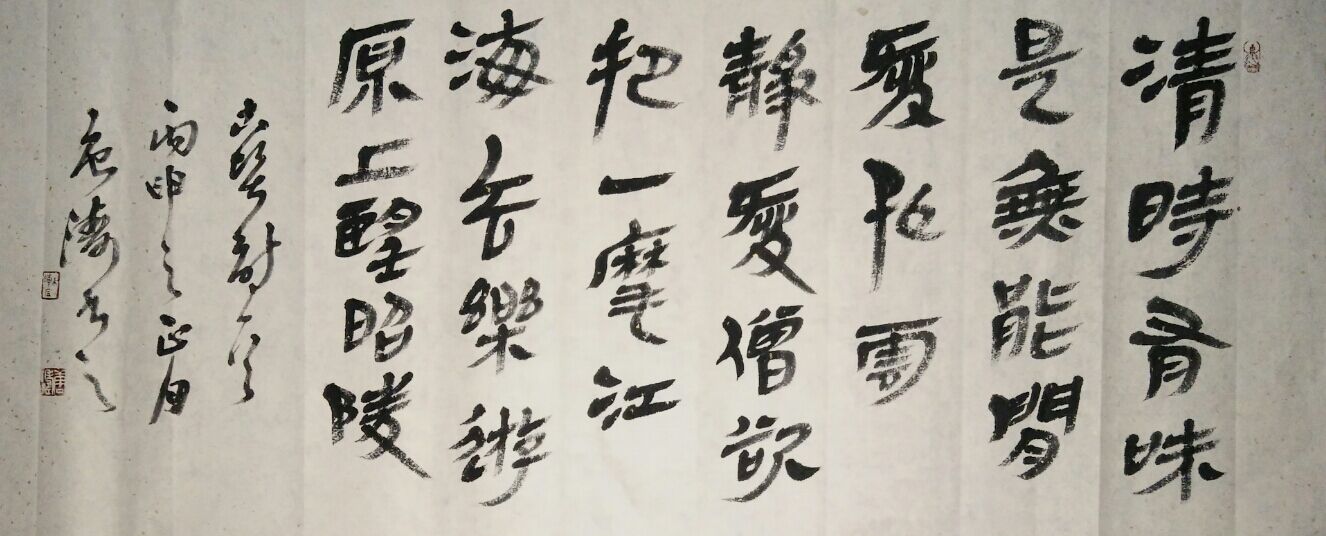 清時有味
是無能閒
愛孤雲
靜愛僧欲
把一麾江
海去樂遊
原上望昭陵
詩一首
丙申之正月
濤書之